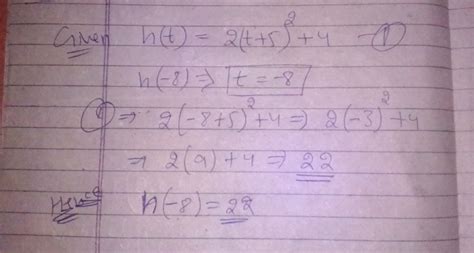 Given h(t) = 2(t+5)² + 4 — ①
h(-8) ⇒ t = -8
① ⇒ 2(-8+5)² + 4 ⇒ 2(-3)² + 4
⇒ 2(9) + 4 ⇒ 22
Hence h(-8) = 22